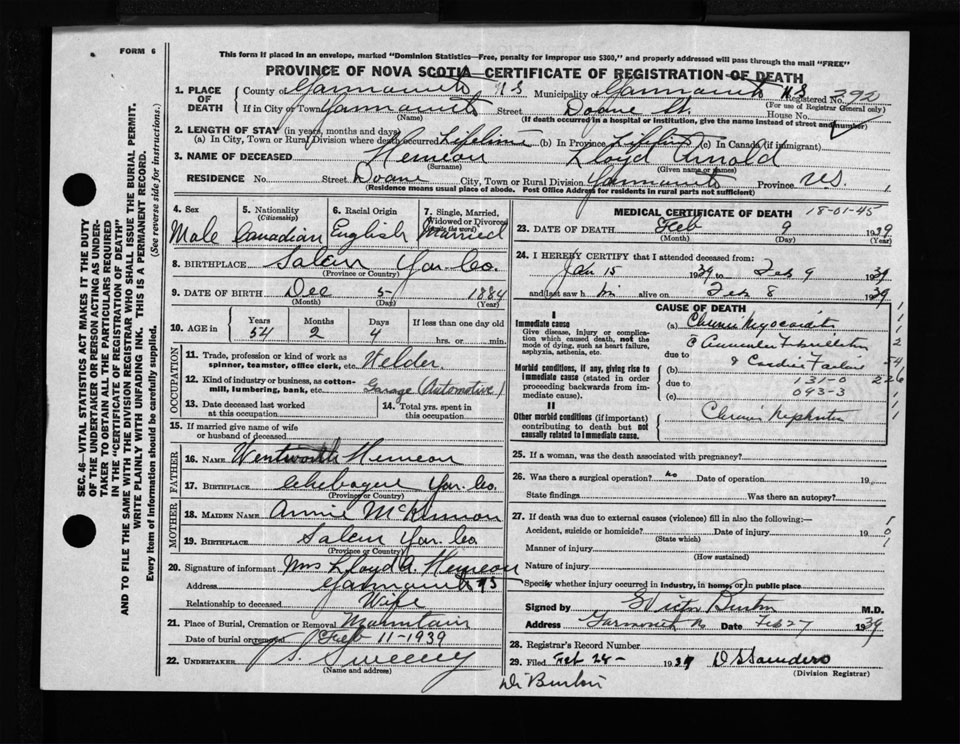 FORM 6
This form if placed in an envelope, marked "Dominion Statistics—Free, penalty for improper use $300," and properly addressed will pass through the mail "FREE"
PROVINCE OF NOVA SCOTIA—CERTIFICATE OF REGISTRATION OF DEATH
1. PLACE OF DEATH County of Yarmouth N S Municipality of Yarmouth N.S. Registered No. 392
(For use of Registrar General only)
If in City or Town Yarmouth Street Doane St House No.
(Name) (If death occurred in a hospital or institution, give the name instead of street and number)
2. LENGTH OF STAY (in years, months and days)
(a) In City, Town or Rural Division where death occurred Lifetime (b) In Province Lifetime (c) In Canada (if immigrant)
3. NAME OF DECEASED Hemeon Lloyd Arnold
(Surname) (Given name or names)
RESIDENCE No. Street Doane City, Town or Rural Division Yarmouth Province N.S.
(Residence means usual place of abode. Post Office Address for residents in rural parts not sufficient)
4. Sex 5. Nationality (Citizenship) 6. Racial Origin 7. Single, Married, Widowed or Divorced (write the word)
Male Canadian English Married
8. BIRTHPLACE Salem Yar. Co.
(Province or Country)
9. DATE OF BIRTH Dec 5 1884
(Month) (Day) (Year)
10. AGE in Years Months Days If less than one day old
54 2 4 hrs. or min.
OCCUPATION
11. Trade, profession or kind of work as spinner, teamster, office clerk, etc. Welder
12. Kind of industry or business, as cotton-mill, lumbering, bank, etc. Garage Automotive
13. Date deceased last worked at this occupation 14. Total yrs. spent in this occupation
15. If married give name of wife or husband of deceased
FATHER
16. NAME Wentworth Hemeon
17. BIRTHPLACE Chebogue Yar. Co.
(Province or Country)
MOTHER
18. MAIDEN NAME Annie McKinnon
19. BIRTHPLACE Salem Yar. Co
(Province or Country)
20. Signature of informant Mrs Lloyd A. Hemeon
Address Yarmouth N S
Relationship to deceased Wife
21. Place of Burial, Cremation or Removal Mountain
Date of burial or removal Feb 11-1939
22. UNDERTAKER Sweeny
(Name and address)
MEDICAL CERTIFICATE OF DEATH 18-01-45
23. DATE OF DEATH Feb 9 1939
(Month) (Day) (Year)
24. I HEREBY CERTIFY that I attended deceased from:
Jan 15 1939 to Feb 9 1939
and last saw him alive on Feb 8 1939
CAUSE OF DEATH
I
Immediate cause
Give disease, injury or complication which caused death, not the mode of dying, such as heart failure, asphyxia, asthenia, etc.
(a) Chronic Myocarditis
c Auricular Fibrillation
due to
Morbid conditions, if any, giving rise to immediate cause (stated in order proceeding backwards from immediate cause).
(b) & Cardiac Failure
due to 131-0 226
(c) 093-3
II
Other morbid conditions (if important) contributing to death but not causally related to immediate cause.
Chronic Nephritis
25. If a woman, was the death associated with pregnancy?
26. Was there a surgical operation? no Date of operation 19
State findings Was there an autopsy?
27. If death was due to external causes (violence) fill in also the following:—
Accident, suicide or homicide? Date of injury 19
(State which)
Manner of injury
(How sustained)
Nature of injury
Specify whether injury occurred in industry, in home, or in public place
Signed by Victor Burton M.D.
Address Yarmouth N Date Feb 27 1939
28. Registrar's Record Number
29. Filed Feb 28- 1939 D S Saunders
(Division Registrar)
Dr Burton
SEC. 46—VITAL STATISTICS ACT MAKES IT THE DUTY
OF THE UNDERTAKER OR PERSON ACTING AS UNDER-
TAKER TO OBTAIN ALL THE PARTICULARS REQUIRED
IN THE "CERTIFICATE OF REGISTRATION OF DEATH"
AND TO FILE THE SAME WITH THE DIVISION REGISTRAR WHO SHALL ISSUE THE BURIAL PERMIT.
WRITE PLAINLY WITH UNFADING INK. THIS IS A PERMANENT RECORD.
Every item of information should be carefully supplied. (See reverse side for instructions.)